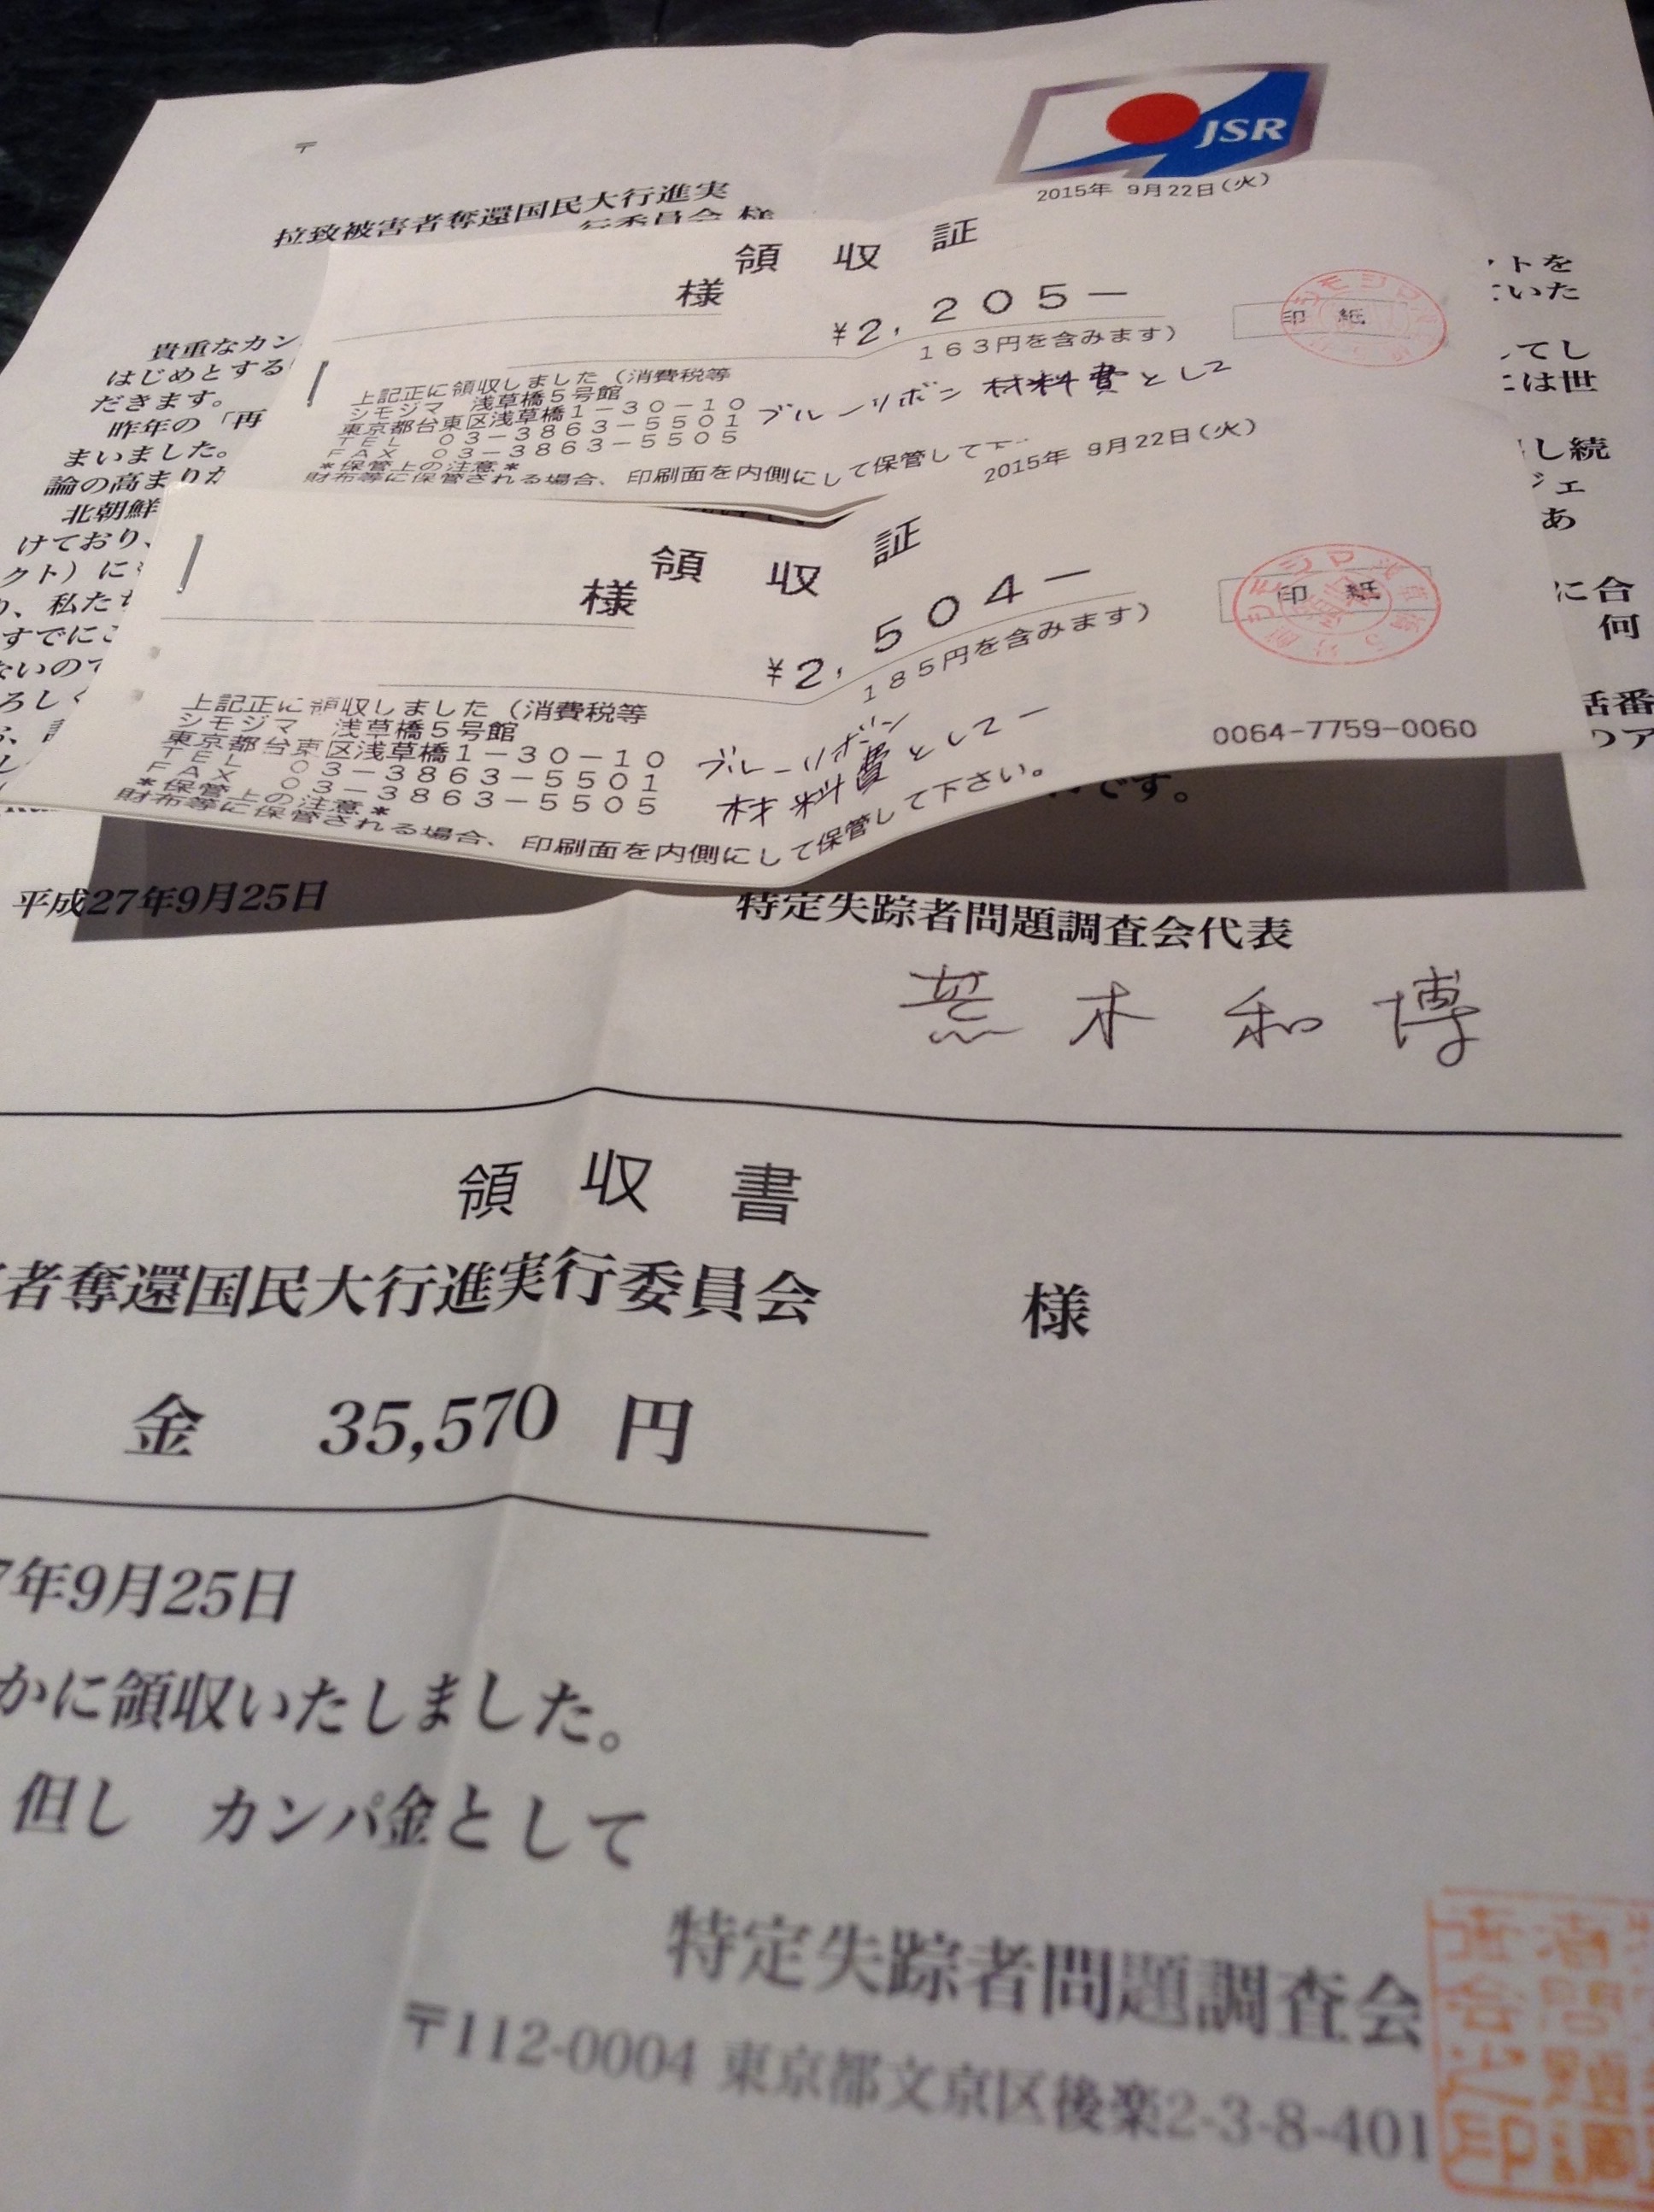 〒
JSR
拉致被害者奪還国民大行進実
行委員会 様
2015年 9月22日(火)
領 収 証
様
¥2,205－
163円を含みます)
印 紙
上記正に領収しました(消費税等
シモジマ 浅草橋5号館
東京都台東区浅草橋1－30－10
TEL 03－3863－5501
FAX 03－3863－5505
ブルーリボン 材料費として
*保管上の注意*
財布等に保管される場合、印刷面を内側にして保管して下
貴重なカン
はじめとする
だきます。
昨年の「再
まいました。
論の高まりが
北朝鮮
けており、
クト)に
り、私たち
すでにこ
ないので
ろしく
トを
いた
てし
は世
し続
ジェ
あ
に合
何
話番
2015年 9月22日(火)
領 収 証
様
¥2,504－
185円を含みます)
印 紙
上記正に領収しました(消費税等
シモジマ 浅草橋5号館
東京都台東区浅草橋1－30－10
TEL 03－3863－5501
FAX 03－3863－5505
ブルーリボン
材料費として－
0064-7759-0060
*保管上の注意*
財布等に保管される場合、印刷面を内側にして保管して下さい。
です。
平成27年9月25日
特定失踪者問題調査会代表
荒木和博
領 収 書
者奪還国民大行進実行委員会 様
金 35,570 円
7年9月25日
かに領収いたしました。
但し カンパ金として
特定失踪者問題調査会
〒112-0004 東京都文京区後楽2-3-8-401